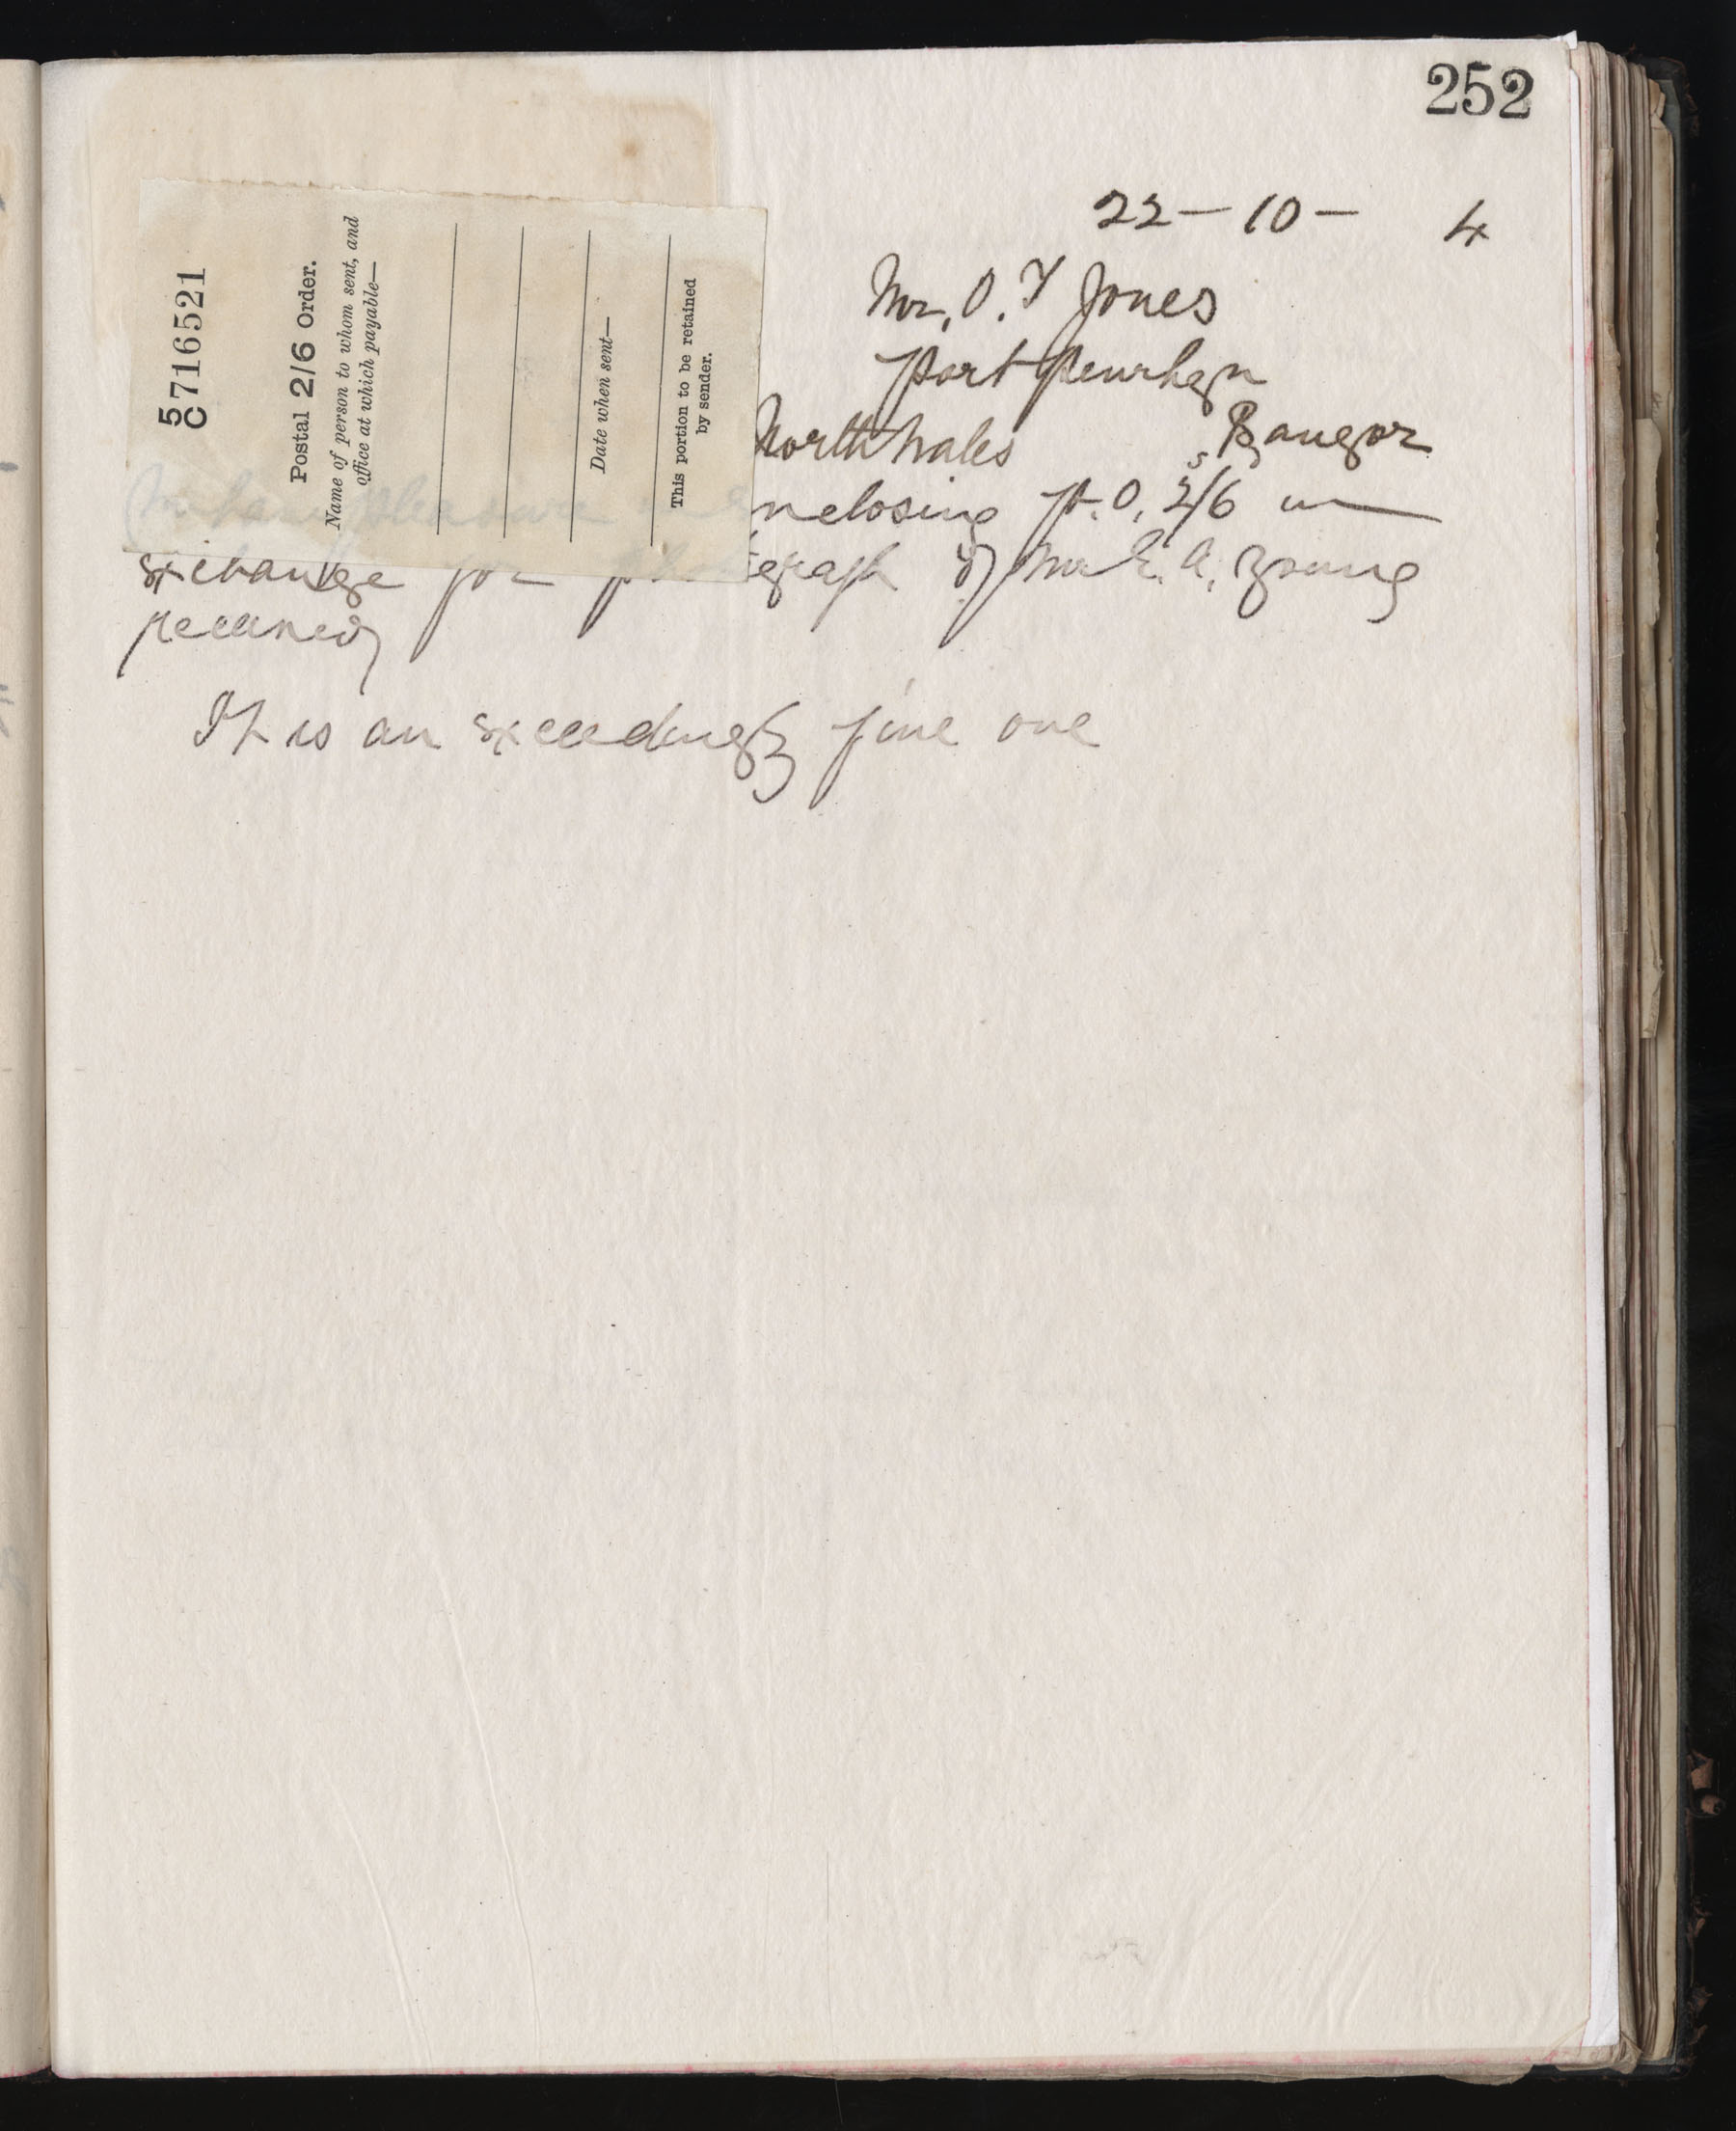 252
22 — 10 — 4
Mr. O. T Jones
Port Penrhyn
Bangor
North Wales
I have pleasure in enclosing P.O. 2/6 in
exchange for photograph of Mr E. A. Young
received
It is an exceedingly fine one
5
C 716521
Postal 2/6 Order.
Name of person to whom sent, and
office at which payable—
Date when sent—
This portion to be retained
by sender.